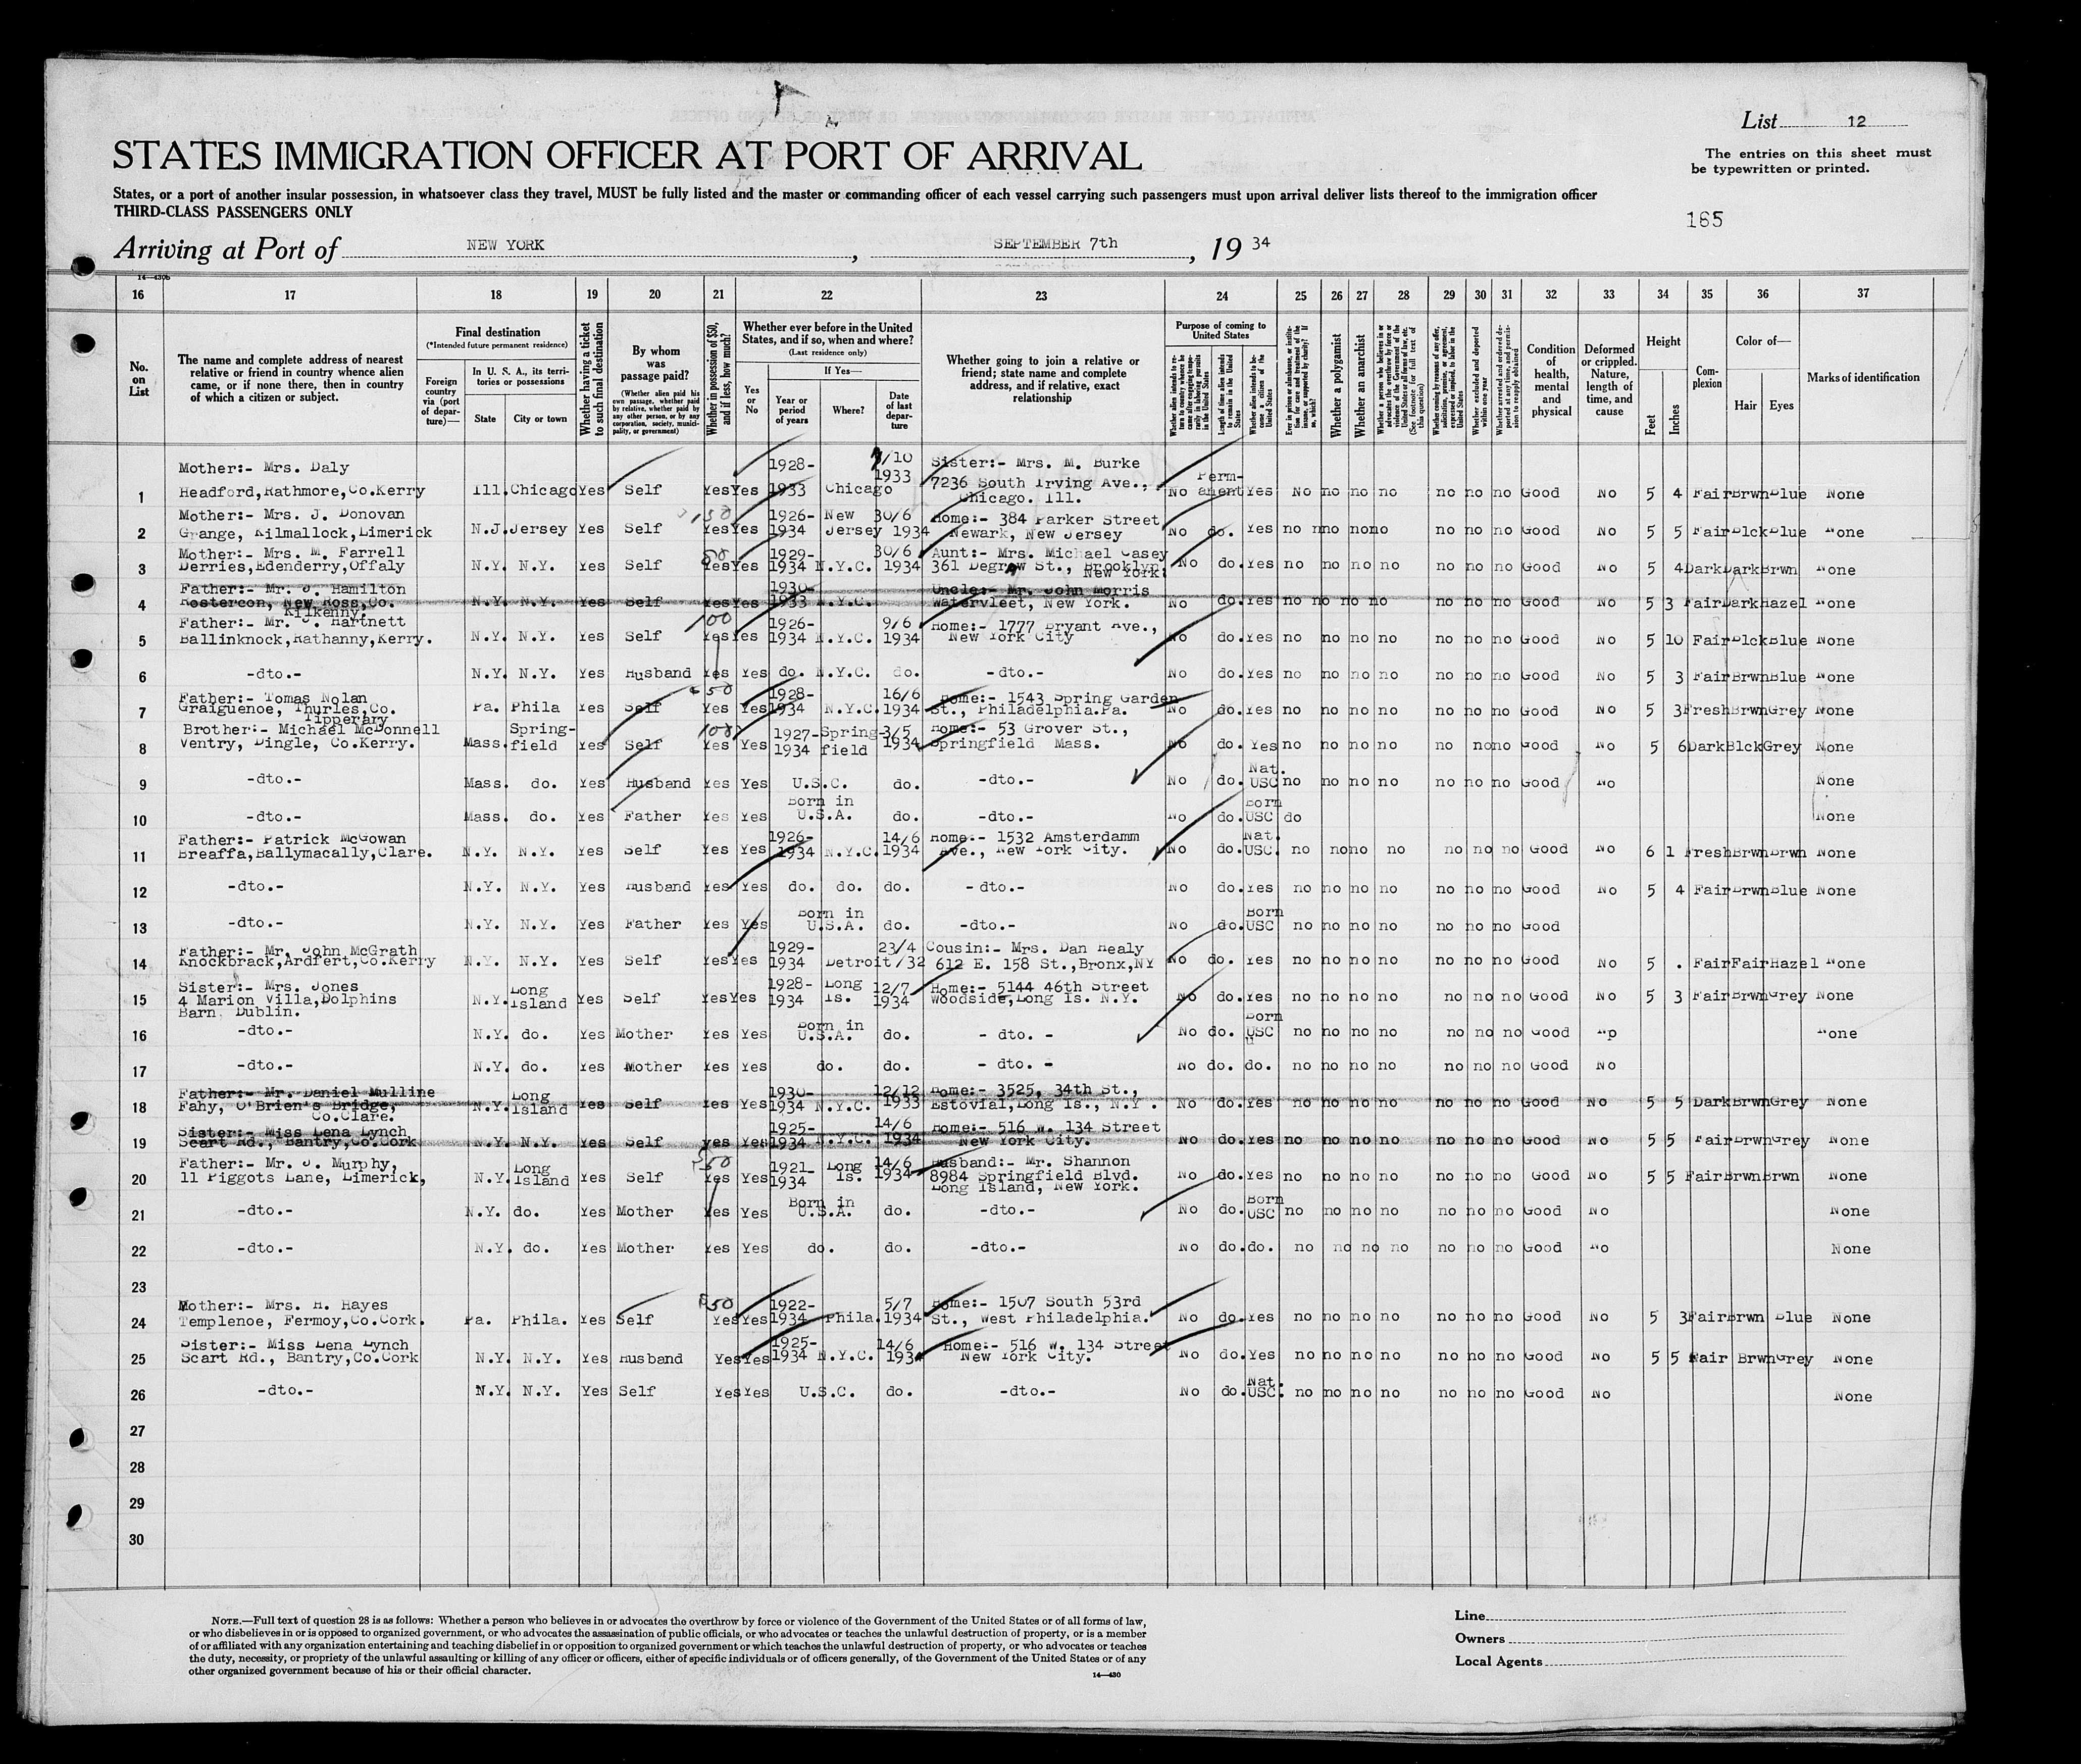 List 12
STATES IMMIGRATION OFFICER AT PORT OF ARRIVAL
The entries on this sheet must
be typewritten or printed.
States, or a port of another insular possession, in whatsoever class they travel, MUST be fully listed and the master or commanding officer of each vessel carrying such passengers must upon arrival deliver lists thereof to the immigration officer
THIRD-CLASS PASSENGERS ONLY
165
Arriving at Port of NEW YORK, SEPTEMBER 7th, 19 34
14—430b
16 17 18 19 20 21 22 23 24 25 26 27 28 29 30 31 32 33 34 35 36 37
No. on List
The name and complete address of nearest relative or friend in country whence alien came, or if none there, then in country of which a citizen or subject.
Final destination
(*Intended future permanent residence)
Foreign country via (port of departure)—
In U. S. A., its territories or possessions
State
City or town
Whether having a ticket to such final destination
By whom was passage paid?
(Whether alien paid his own passage, whether paid by relative, whether paid by any other person, or by any corporation, society, municipality, or government)
Whether in possession of $50, and if less, how much?
Whether ever before in the United States, and if so, when and where?
(Last residence only)
Yes or No
If Yes—
Year or period of years
Where?
Date of last departure
Whether going to join a relative or friend; state name and complete address, and if relative, exact relationship
Purpose of coming to United States
Length of time alien intends to remain in the United States
Whether alien intends to become a citizen of the United States
Whether a polygamist
Whether an anarchist
Condition of health, mental and physical
Deformed or crippled. Nature, length of time, and cause
Height
Feet
Inches
Complexion
Color of—
Hair
Eyes
Marks of identification
Mother:- Mrs. Daly 1928- /10 Sister:- Mrs. M. Burke
1933 7236 South Irving Ave., Perm-
1 Headford,Rathmore,Co.Kerry Ill. Chicago Yes Self Yes Yes 1933 Chicago Chicago. Ill. No anent Yes No no no no no no no Good No 5 4 Fair Brwn Blue None
Mother:- Mrs. J. Donovan 1926- New 30/6 Home:- 384 Parker Street
2 Grange, Kilmallock,Limerick N.J. Jersey Yes Self Yes Yes 1934 Jersey 1934 Newark, New Jersey No do. Yes no no no no no no no Good No 5 5 Fair Blck Blue None
Mother:- Mrs. M. Farrell 50 1929- 30/6 Aunt:- Mrs. Michael Casey
3 Derries,Edenderry,Offaly N.Y. N.Y. Yes Self Yes Yes 1934 N.Y.C. 1934 361 Degraw St., Brooklyn No do. Yes no no no no no no no Good No 5 4 Dark Dark Brwn None
New York.
Father:- Mr. J. Hamilton 1930- Uncle:- Mr. John Morris
4 Rostercon, New Ross,Co. N.Y. N.Y. Yes Self Yes Yes 1933 N.Y.C. Watervleet, New York. No do. Yes no no no no no no no Good No 5 3 Fair Dark Hazel None
Kilkenny.
Father:- Mr. J. Hartnett 100 1926- 9/6 Home:- 1777 Bryant Ave.,
5 Ballinknock,Rathanny,Kerry. N.Y. N.Y. Yes Self Yes Yes 1934 N.Y.C. 1934 New York City No do. Yes no no no no no no no Good No 5 10 Fair Blck Blue None
6 -dto.- N.Y. N.Y. Yes Husband Yes Yes do. N.Y.C. do. -dto.- No do. Yes no no no no no no no Good No 5 3 Fair Brwn Blue None
Father:- Tomas Nolan 50 1928- 16/6 Home:- 1543 Spring Garden
7 Graiguenoe, Thurles,Co. Pa. Phila Yes Self Yes Yes 1934 N.Y.C. 1934 St., Philadelphia.Pa. No do. Yes no no no no no no no Good No 5 3 Fresh Brwn Grey None
Tipperary
Brother:- Michael McDonnell Spring- 100 1927- Spring- 3/5 Home:- 53 Grover St.,
8 Ventry, Dingle, Co.Kerry. Mass. field Yes Self Yes Yes 1934 field 1934 Springfield Mass. No do. Yes no no no no no no no Good No 5 6 Dark Blck Grey None
Nat.
9 -dto.- Mass. do. Yes Husband Yes Yes U.S.C. do. -dto.- No do. USC no no no no no no no Good No None
Born in Born
10 -dto.- Mass. do. Yes Father Yes Yes U.S.A. do. -dto.- No do. USC do None
Father:- Patrick McGowan 1926- 14/6 Home:- 1532 Amsterdamm Nat.
11 Breaffa,Ballymacally,Clare. N.Y. N.Y. Yes Self Yes Yes 1934 N.Y.C. 1934 Ave., New York City. No do. USC. no no no no no no no Good No 6 1 Fresh Brwn Brwn None
12 -dto.- N.Y. N.Y. Yes Husband Yes Yes do. do. do. - dto.- No do. Yes no no no no no no no Good No 5 4 Fair Brwn Blue None
Born in Born
13 -dto.- N.Y. N.Y. Yes Father Yes Yes U.S.A. do. -dto.- No do. USC no no no no no no no Good
Father:- Mr. John McGrath 1929- 23/4 Cousin:- Mrs. Dan Healy
14 Knockbrack,Ardfert,Co.Kerry N.Y. N.Y. Yes Self Yes Yes 1934 Detroit /32 612 E. 158 St.,Bronx,NY No do. Yes no no no no no no no Good No 5 . Fair Fair Hazel None
Sister:- Mrs. Jones Long 1928- Long 12/7 Home:- 5144 46th Street
15 4 Marion Villa,Dolphins N.Y. Island Yes Self Yes Yes 1934 Is. 1934 Woodside,Long Is. N.Y. No do. Yes no no no no no no no Good No 5 3 Fair Brwn Grey None
Barn Dublin.
Born in Born
16 -dto.- N.Y. do. Yes Mother Yes Yes U.S.A. do. - dto. - No do. USC no no no no no no no Good Np None
17 -dto.- N.Y. do. Yes Mother Yes Yes do. do. - dto. - No do. do. no no no no no no no Good No
Father:- Mr. Daniel Mulline Long 1930- 12/12 Home:- 3525, 34th St.,
18 Fahy, O'Brien's Bridge, N.Y. Island Yes Self Yes Yes 1934 N.Y.C. 1933 Estovial,Long Is., N.Y. No do. Yes no no no no no no no Good No 5 5 Dark Brwn Grey None
Co.Clare.
Sister:- Miss Lena Lynch 1925- 14/6 Home:- 516 W. 134 Street
19 Scart Rd., Bantry,Co.Cork N.Y. N.Y. Yes Self yes Yes 1934 N.Y.C. 1934 New York City. No do. Yes no no no no no no no Good No 5 5 Fair Brwn Grey None
Father:- Mr. J. Murphy, Long $50 1921- Long 14/6 Husband:- Mr. Shannon
20 11 Piggots Lane, Limerick, N.Y. Island Yes Self Yes Yes 1934 Is. 1934 8984 Springfield Blvd. No do. Yes no no no no no no no Good No 5 5 Fair Brwn Brwn None
Long Island, New York.
Born in Born
21 -dto.- N.Y. do. Yes Mother Yes Yes U.S.A. do. -dto.- No do. USC no no no no no no no Good No None
22 -dto.- N.Y. do. Yes Mother Yes Yes do. do. -dto.- No do. do. no no no no no no no Good No None
23
Mother:- Mrs. H. Hayes $50 1922- 5/7 Home:- 1507 South 53rd
24 Templenoe, Fermoy,Co.Cork. Pa. Phila. Yes Self Yes Yes 1934 Phila. 1934 St., West Philadelphia. No do. Yes no no no no no no no Good No 5 3 Fair Brwn Blue None
Sister:- Miss Lena Lynch 1925- 14/6 Home:- 516 W. 134 Street
25 Scart Rd., Bantry,Co.Cork N.Y. N.Y. Yes Husband Yes Yes 1934 N.Y.C. 193 New York City. No do. Yes no no no no no no no Good No 5 5 Fair Brwn Grey None
Nat.
26 -dto.- N.Y. N.Y. Yes Self Yes Yes U.S.C. do. -dto.- No do. USC. no no no no no no no Good No None
27
28
29
30
NOTE.—Full text of question 28 is as follows: Whether a person who believes in or advocates the overthrow by force or violence of the Government of the United States or of all forms of law,
or who disbelieves in or is opposed to organized government, or who advocates the assassination of public officials, or who advocates or teaches the unlawful destruction of property, or is a member
of or affiliated with any organization entertaining and teaching disbelief in or opposition to organized government or which teaches the unlawful destruction of property, or who advocates or teaches
the duty, necessity, or propriety of the unlawful assaulting or killing of any officer or officers, either of specific individuals or of officers generally, of the Government of the United States or of any
other organized government because of his or their official character.
14—430
Line
Owners
Local Agents